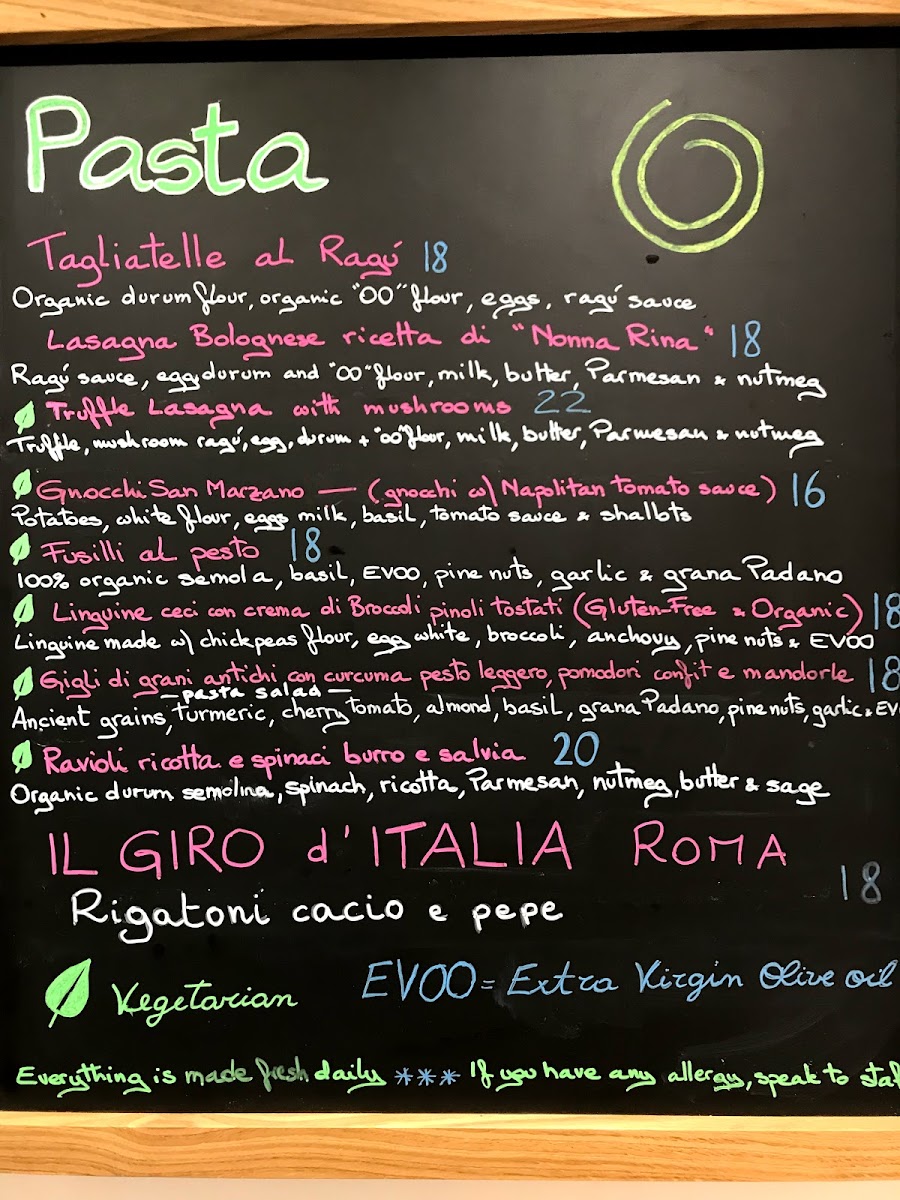 Pasta
Tagliatelle al Ragú 18
Organic durum flour, organic "00" flour, eggs, ragú sauce
Lasagna Bolognese ricetta di "Nonna Rina" 18
Ragú sauce, egg, durum and "00" flour, milk, butter, Parmesan & nutmeg
Truffle Lasagna with mushrooms 22
Truffle, mushroom ragú, egg, durum + "00" flour, milk, butter, Parmesan & nutmeg
Gnocchi San Marzano — (gnocchi w/ Napolitan tomato sauce) 16
Potatoes, white flour, eggs, milk, basil, tomato sauce & shallots
Fusilli al pesto 18
100% organic semola, basil, EVOO, pine nuts, garlic & grana Padano
Linguine ceci con crema di Broccoli pinoli tostati (Gluten-Free & Organic) 18
Linguine made w/ chickpeas flour, egg white, broccoli, anchovy, pine nuts & EVOO
Gigli di grani antichi con curcuma pesto leggero, pomodori confit e mandorle 18
— pasta salad —
Ancient grains, turmeric, cherry tomato, almond, basil, grana Padano, pine nuts, garlic & EV
Ravioli ricotta e spinaci burro e salvia 20
Organic durum semolina, spinach, ricotta, Parmesan, nutmeg, butter & sage
IL GIRO d'ITALIA ROMA
Rigatoni cacio e pepe 18
Vegetarian EVOO = Extra Virgin Olive oil
Everything is made fresh daily *** If you have any allergy, speak to staf